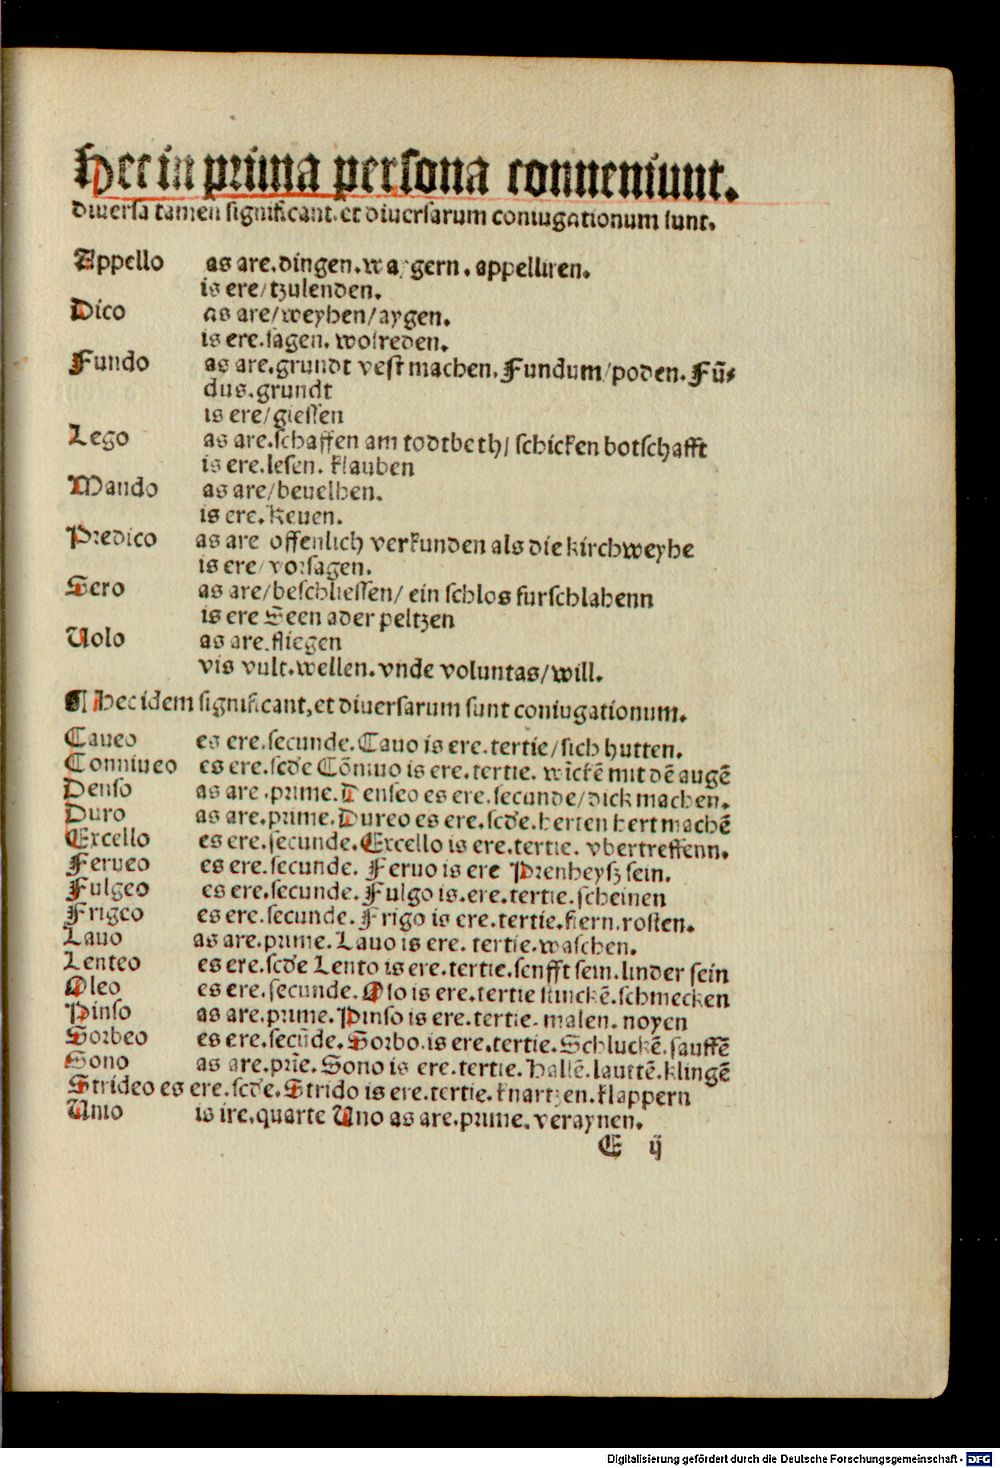 Hec in prima persona conueniunt.
diuersa tamen significant. et diuersarum coniugationum sunt.
Appello as are. dingen. waygern. appelliren.
is ere/ tzulenden.
Dico as are/ weyhen/ aygen.
is ere. sagen. wolreden.
Fundo as are. grundt vest machen. Fundum/ poden. Fũ-
dus. grundt
is ere/ giessen
Lego as are. schaffen am todtbeth/ schicken botschafft
is ere. lesen. klauben
Mando as are/ beuelhen.
is ere. keuen.
Predico as are offenlich verkunden als die kirchweyhe
is ere/ vorsagen.
Sero as are/ beschliessen/ ein schlos furschlahenn
is ere Seen ader peltzen
Uolo as are. fliegen
vis vult. wellen. vnde voluntas/ will.
¶ Hec idem significant, et diuersarum sunt coniugationum.
Caueo es ere. secunde. Cauo is ere. tertie/ sich hutten.
Conniueo es ere. scde Cõniuo is ere. tertie. wĩckẽ mit dẽ augẽ
Denso as are. prime. Denseo es ere. secunde/ dick machen.
Duro as are. prime. Dureo es ere. scde. herten hert machẽ
Excello es ere. secunde. Excello is ere. tertie. vbertreffenn.
Ferueo es ere. secunde. Feruo is ere Prenheysz sein.
Fulgeo es ere. secunde. Fulgo is. ere. tertie. scheinen
Frigeo es ere. secunde. Frigo is ere. tertie. friern. rosten.
Lauo as are. prime. Lauo is ere. tertie. waschen.
Lenteo es ere. scde Lento is ere. tertie. senfft sein. linder sein
Oleo es ere. secunde. Olo is ere. tertie stinckẽ. schmecken
Pinso as are. prime. Pinso is ere. tertie. malen. noyen
Sorbeo es ere. secũde. Sorbo. is ere. tertie. Schluckẽ. sauffẽ
Sono as are. prĩe. Sono is ere. tertie. hallẽ. lauttẽ. klingẽ
Strideo es ere. scde. Strido is ere. tertie. knartzen. klappern
Unio is ire. quarte Uno as are. prime. veraynen.
E ij
Digitalisierung gefördert durch die Deutsche Forschungsgemeinschaft - DFG